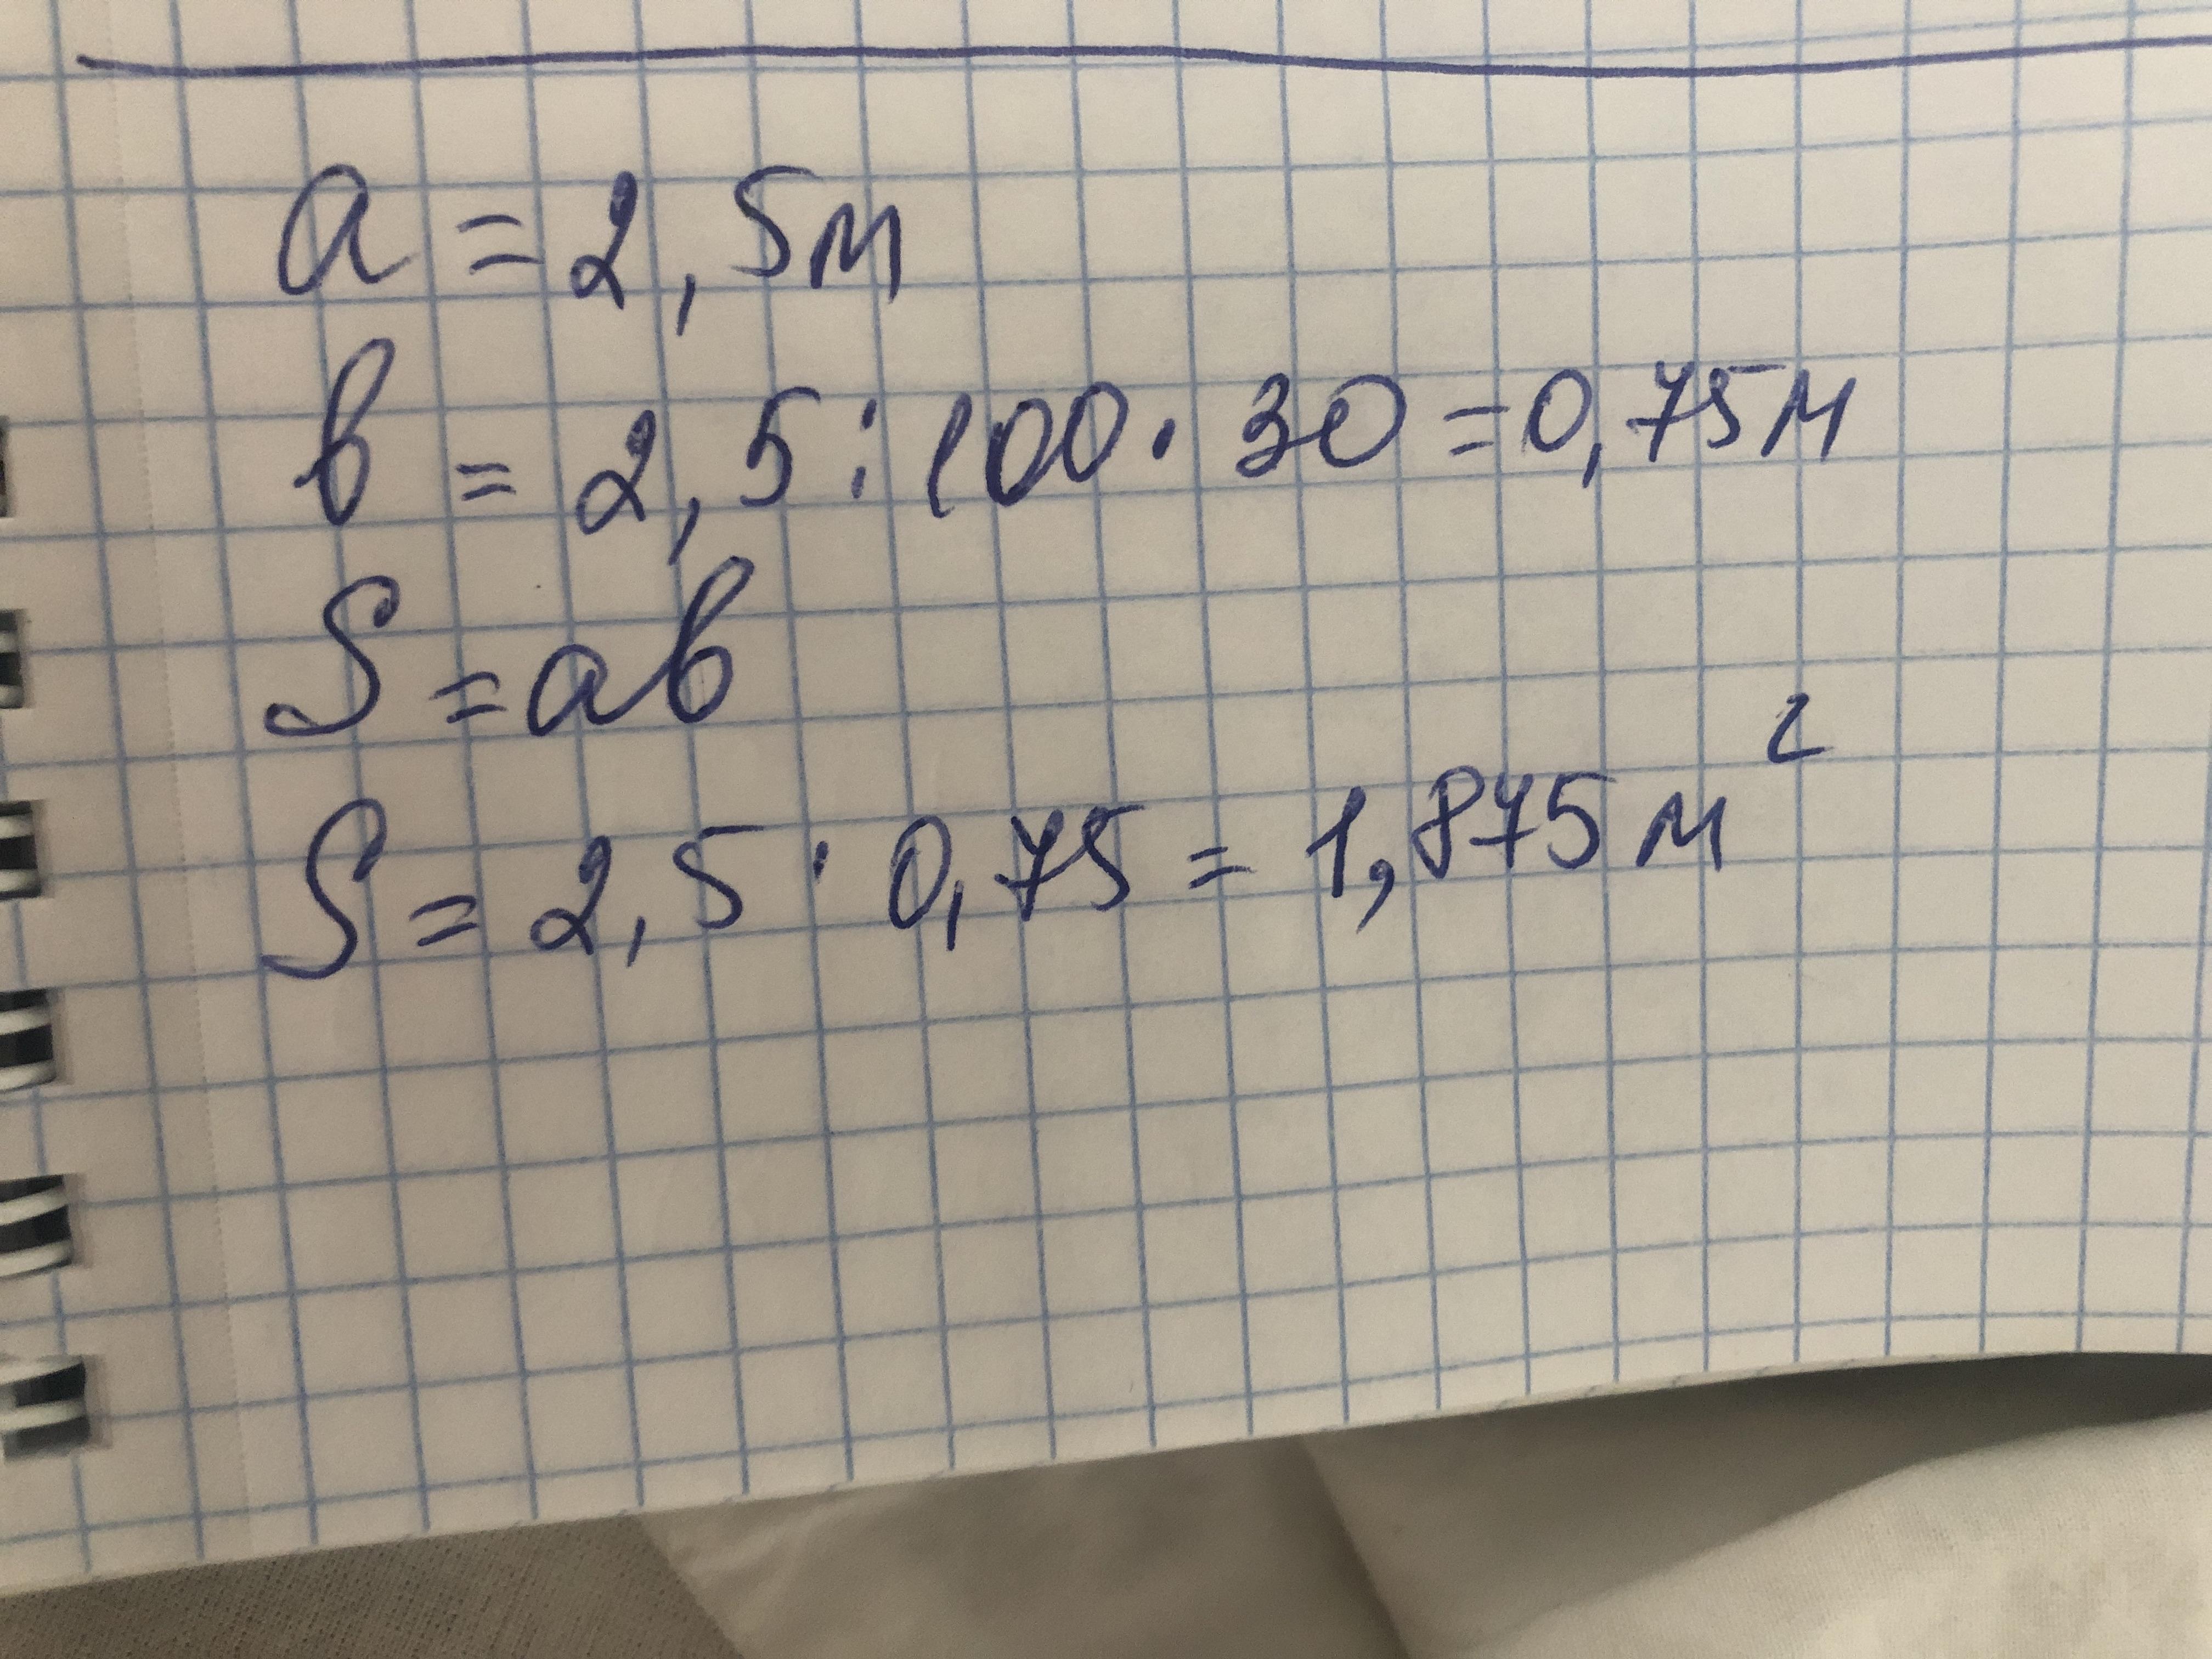 a = 2,5м
b = 2,5 : 100 · 30 = 0,75м
S = ab
S = 2,5 · 0,75 = 1,875 м²